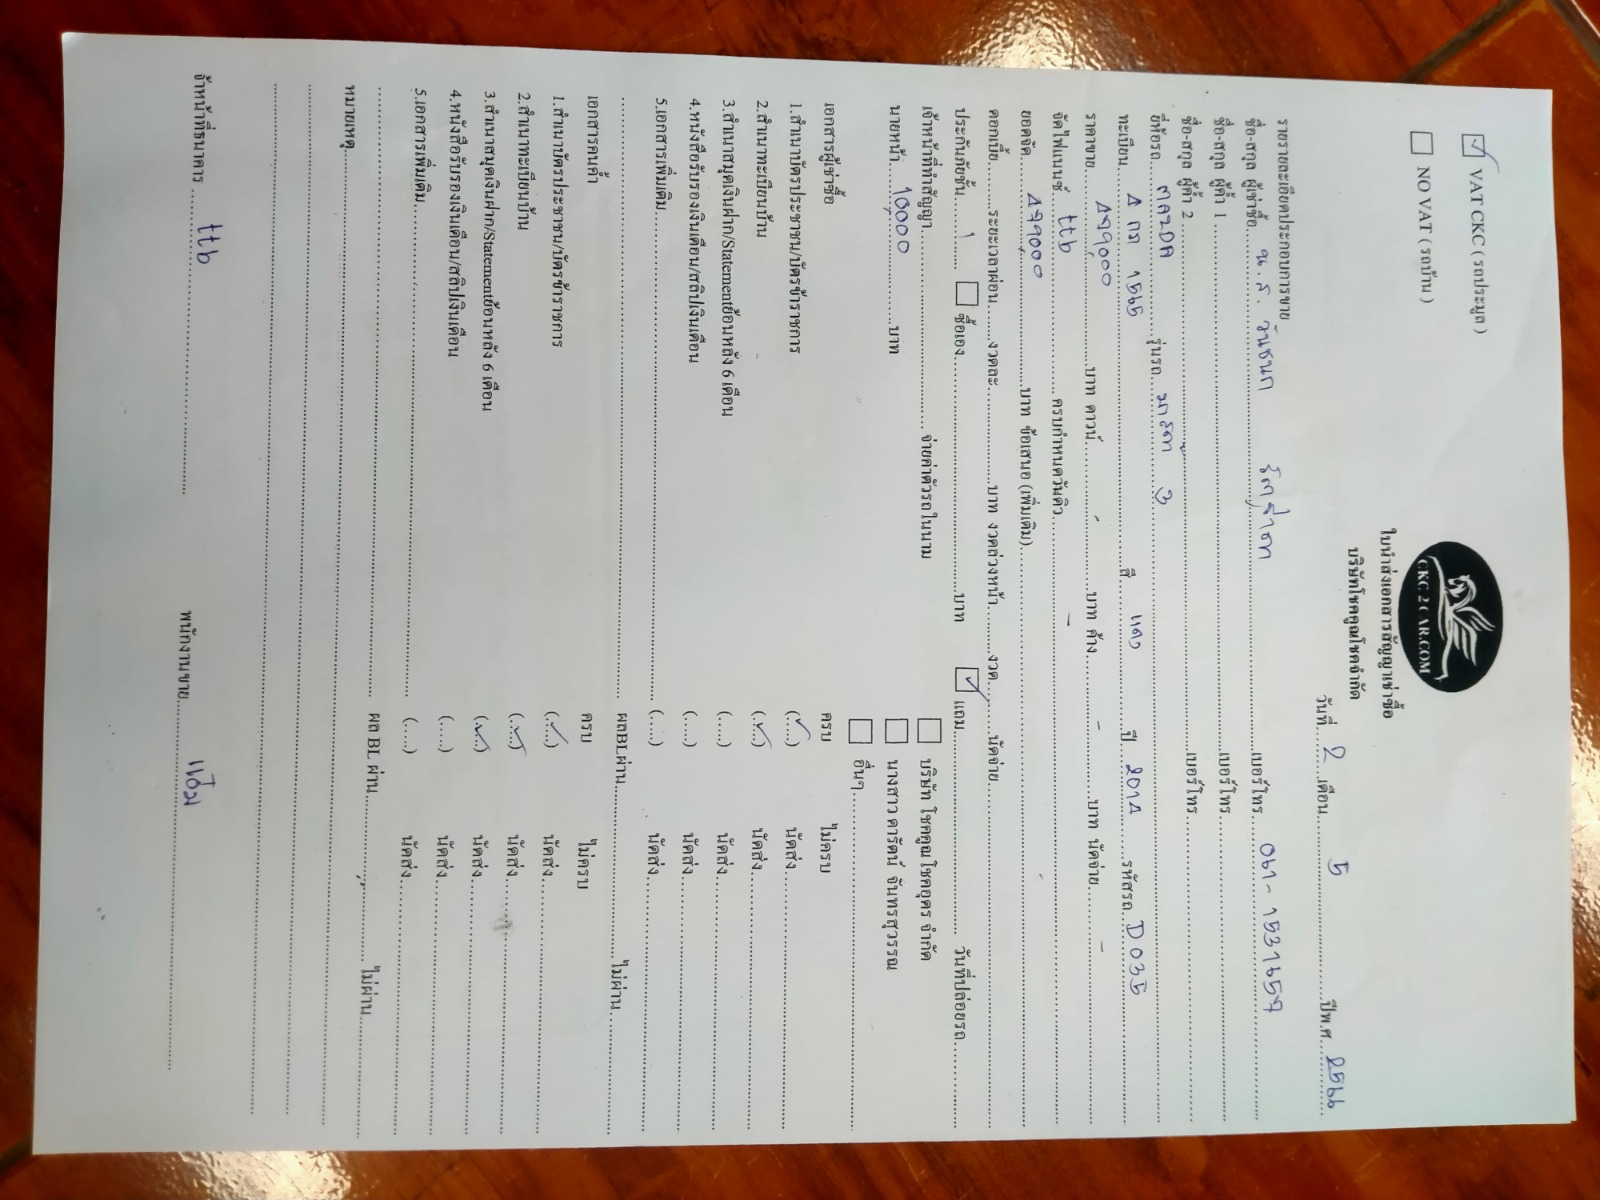 ☑ VAT CKC ( รถประมูล )
☐ NO VAT ( รถบ้าน )
CKC 2 CAR.COM
ใบนำส่งเอกสารสัญญาเช่าซื้อ
บริษัทโชคคูณโชคจำกัด
วันที่ 2 เดือน 5 ปีพ.ศ. 2566
รายรายละเอียดประกอบการขาย
ชื่อ-สกุล ผู้เช่าซื้อ น.ส. วันชนก เบอร์โทร
ชื่อ-สกุล ผู้ค้ำ 1 เบอร์โทร
ชื่อ-สกุล ผู้ค้ำ 2 เบอร์โทร
ยี่ห้อรถ MAZDA รุ่นรถ มาสด้า 3
ทะเบียน 4 กก 1566 สี แดง ปี 2014 รหัสรถ D 035
ราคาขาย 499,000 บาท ดาวน์ - บาท ค้าง - บาท นัดจ่าย -
จัดไฟแนนซ์ ttb ครบกำหนดวันคิว -
ยอดจัด 499,000 บาท ข้อเสนอ (เพิ่มเติม)
ดอกเบี้ย ระยะเวลาผ่อน งวดละ บาท งวดล่วงหน้า งวด นัดจ่าย
ประกันภัยชั้น 1 ☐ ซื้อเอง บาท ☑ แถม วันที่ปล่อยรถ
เจ้าหน้าที่ทำสัญญา จ่ายค่าตัวรถในนาม ☐ บริษัท โชคคูณโชคอุดร จำกัด
นายหน้า 10,000 บาท ☐ นางสาว ดารัตน์ จันทรสุวรรณ
☐ อื่นๆ
เอกสารผู้เช่าซื้อ ครบ ไม่ครบ
1.สำเนาบัตรประชาชน/บัตรข้าราชการ (✓) นัดส่ง
2.สำเนาทะเบียนบ้าน (✓) นัดส่ง
3.สำเนาสมุดเงินฝาก/Statementย้อนหลัง 6 เดือน (....) นัดส่ง
4.หนังสือรับรองเงินเดือน/สลิปเงินเดือน (....) นัดส่ง
5.เอกสารเพิ่มเติม (....) นัดส่ง
ผลBLผ่าน ไม่ผ่าน
เอกสารคนค้ำ ครบ ไม่ครบ
1.สำเนาบัตรประชาชน/บัตรข้าราชการ (✓) นัดส่ง
2.สำเนาทะเบียนบ้าน (✓) นัดส่ง
3.สำเนาสมุดเงินฝาก/Statementย้อนหลัง 6 เดือน (✓) นัดส่ง
4.หนังสือรับรองเงินเดือน/สลิปเงินเดือน (....) นัดส่ง
5.เอกสารเพิ่มเติม (....) นัดส่ง
ผล BL ผ่าน ไม่ผ่าน
หมายเหตุ
จ้าหน้าที่ธนาคาร ttb พนักงานขาย